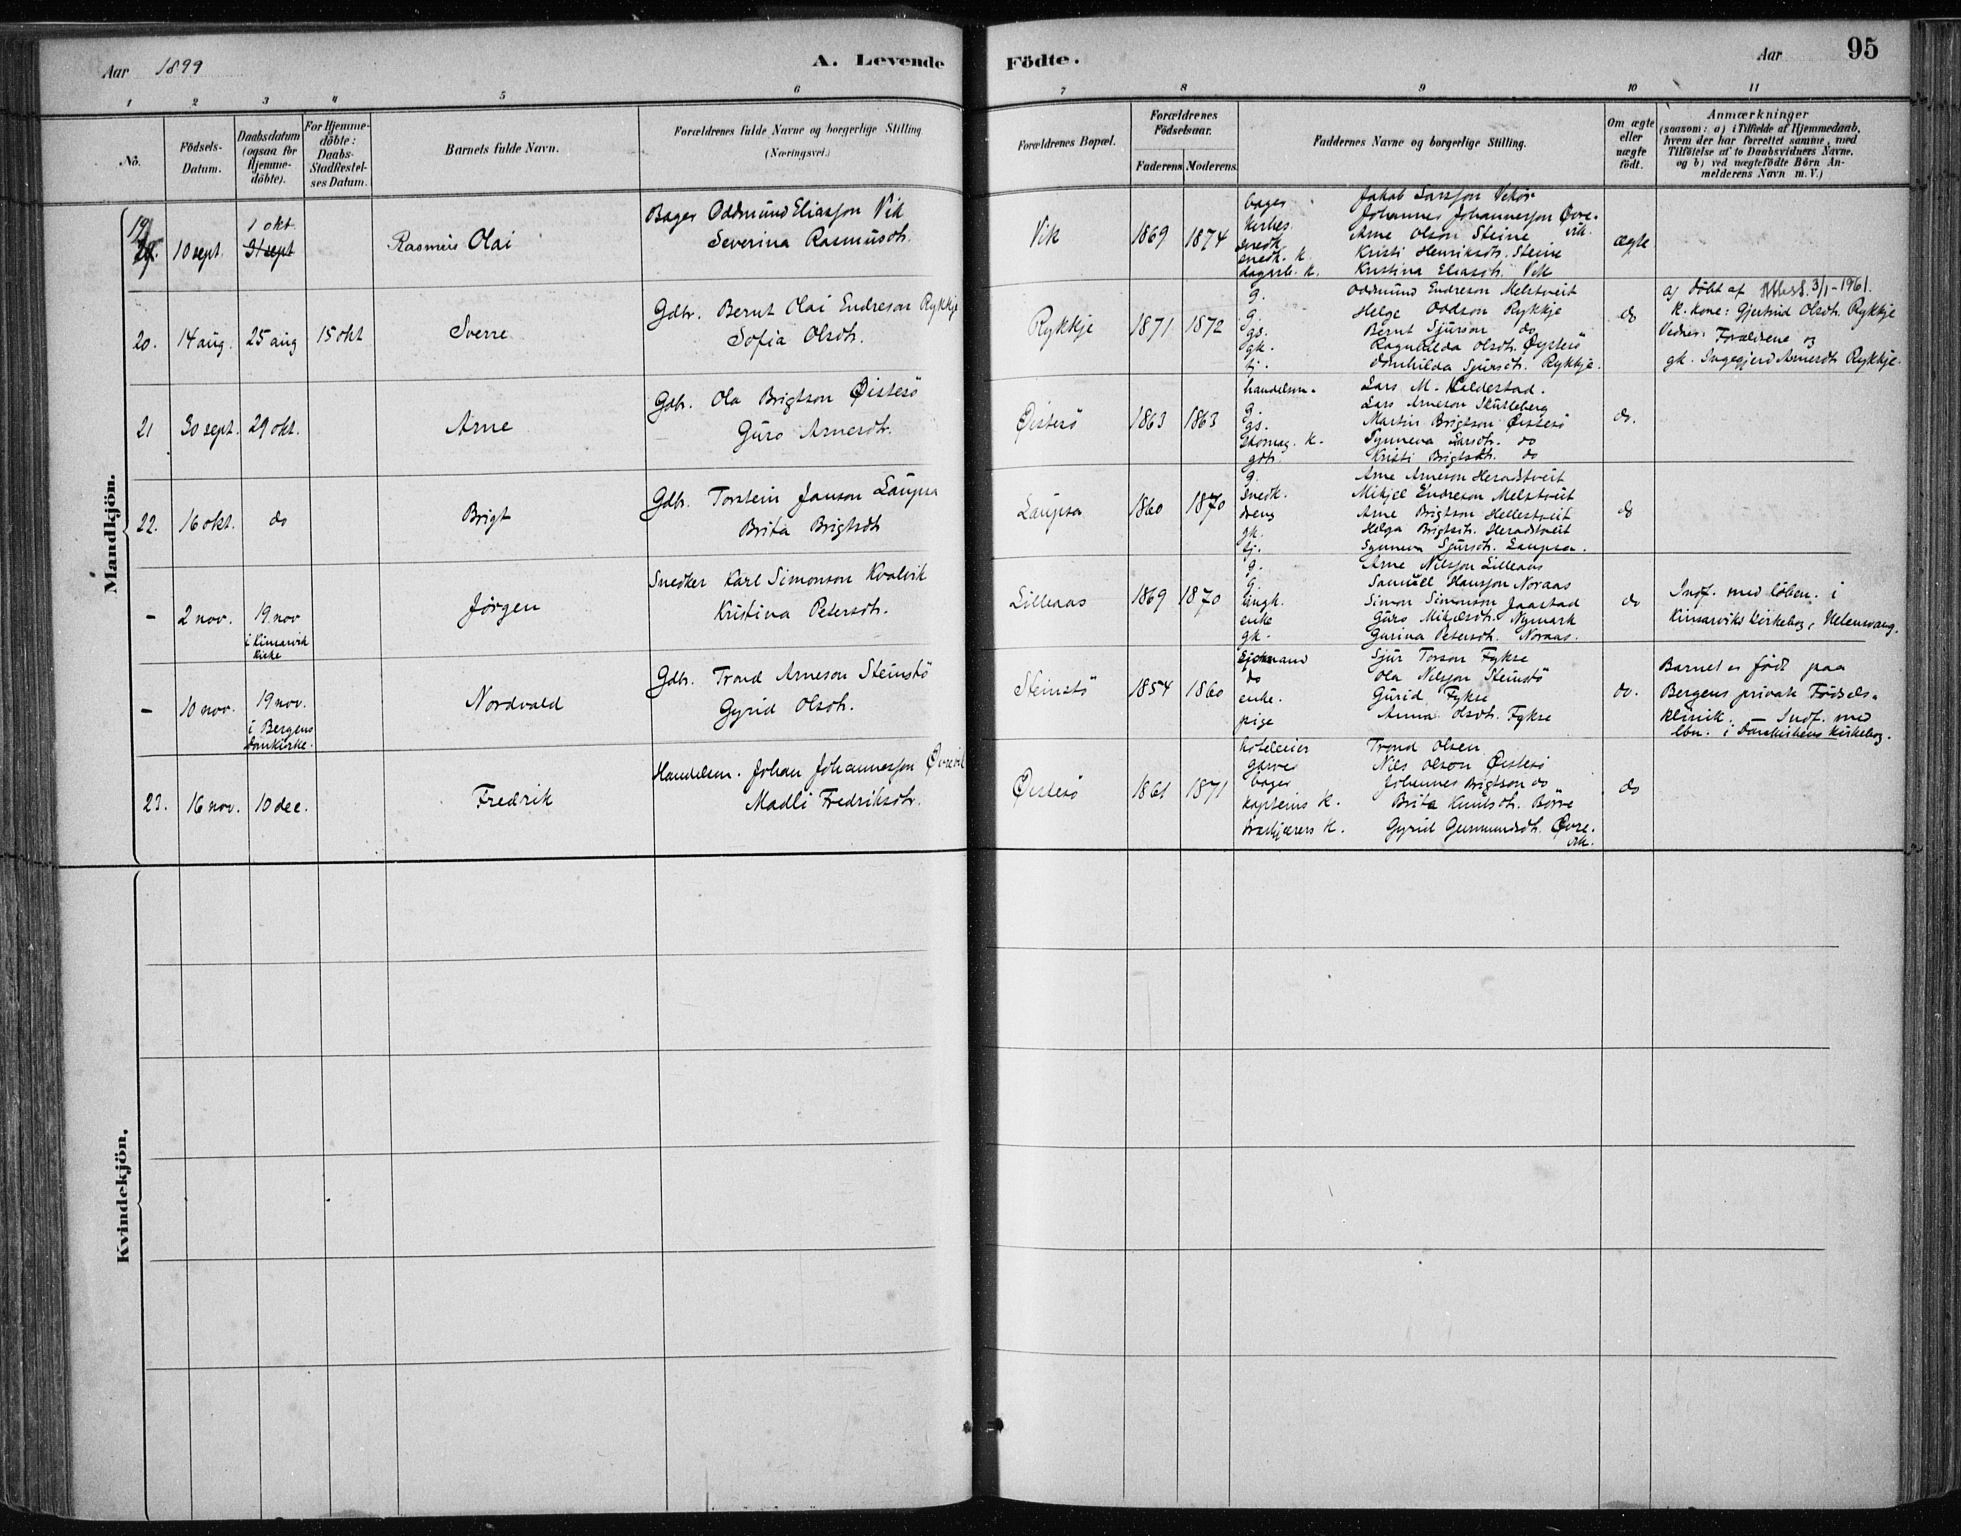 Aar 1899
A. Levende Födte.
Aar
95
1 2 3 4 5 6 7 8 9 10 11
No.
Födsels-Datum.
Daabsdatum (ogsaa for Hjemme-döbte).
For Hjemme-döbte: Daabs-Stadfæstel-ses Datum.
Barnets fulde Navn.
Forældrenes fulde Navne og borgerlige Stilling (Næringsvei.)
Forældrenes Bopæl.
Forældrenes Födselsaar.
Faderens Moderens
Faddernes Navne og borgerlige Stilling.
Om ægte eller uægte födt.
Anmærkninger
(saasom: a) i Tilfælde af Hjemmedaab, hvem der har forrettet samme, med Tilföielse af to Daabsvidners Navne, og b) ved uægtefödte Börn An-melderens Navn m. V.)
Mandkjön.
19
10 sept.
1 okt.
31 sept
Rasmus Olai
Bager Oddmund Eliasson Vik
Severina Rasmusdtr.
Vik
1869
1874
bager Jakob Larsson Vikör
Johannes Johannesson Øvre-vik
snedk. Arne Olson Steine
snedk. k. Kristi Henriksdtr. Steine
dagarb. k. Kristina Eliasdtr. Vik
ægte
20.
14 aug.
25 aug
15 okt
Sverre
Gdbr. Bernt Olai Endreson Rykkje
Sofia Olsdtr.
Rykkje
1871
1872
g. Oddmund Endreson Melstveit
g. Helge Oddson Rykkje
gs. Bernt Sjurson do
gk. Ragnhilda Olsdtr. Øystesö
tj. Domhilda Sjursdtr. Rykkje.
do
a) Döbt af
3/1-1961.
k. kone: Gjertrud Olsdt. Rykkje
Vidner: Forældrene og
gk. Ingegjerd Arnesdt. Rykkje.
21
30 sept.
29 okt.
Arne
Gdbr. Ola Brigtson Øistesö
Guro Arnesdtr.
Øistesö
1863
1863
handelsm. Lars M. Kaldestad.
g. Lars Arneson Skutleberg
gs. Martin Brigtson Øistesö
skomag. k. Synneva Larsdtr. do
gdtr. Kristi Brigtsdtr. do
do.
22.
16 okt.
do
Brigt
Gdbr. Torstein Janson Laupsa
Brita Brigtsdt
Laupsa
1860
1870
g. Arne Arneson Heradstveit
snedk. Mikjel Endreson Melstveit
dreng Arne Brigtson Hellestveit
gk. Helga Brigtsdtr. Heradstveit
tj. Synneva Sjursdtr. Laupsa.
do
-
2 nov.
19 nov
i Kinsarvik kirke
Jørgen
Snedker Karl Simonson Kvalvik
Kristina Petersdtr.
Lilleaas
1869
1870
g. Arne Nilsson Lilleaas
g. Samuel Hansson Noraas
ungk. Simon Simonson Jaastad
enke Guro Mikjelsdtr. Nymark
gk. Gurina Petersdtr. Noraas.
do
Indf. med löben. i
Kinsarviks kirkebog, Ullensvang.
-
10 nov.
19 nov.
i Bergens Domkirke.
Nordvald
Gdbr. Trond Arneson Steinstö
Gyrid Olsdtr.
Steinstö
1854
1860
Sjur Torson Fykse
do Ola Nilsson Steinstö
enke. Gurid Fykse
pige Anna Olsdtr. Fykse
do.
Barnet er født paa
Bergens private Fødsels-
klinik. Indf. med
lbn. i Domkirkens kirkebog.
23.
16 nov.
10 dec.
Fredrik
Handelsm. Johan Johannesson Øvrevik
Madli Fredriksdtr.
Øistesö
1861
1871
hoteleier Trond Olsen
garver Nils Olson Øistesö
bager Johannes Brigtson do
kapteins k. Brita Knutsdtr. Börve
k. Gyrid Germundsdtr. Øvre-vik.
do
Kvindekjön.